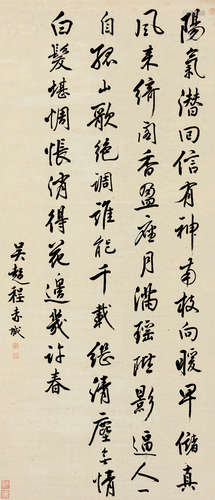 陽氣潛回信有神南枝向暖早儲真
風來綺閣香盈座月滿瑤階影逼人一
自孤山歌絕調誰能千載繼清塵多情
白髮堪惆悵消得花邊幾許春
吳趨程赤城